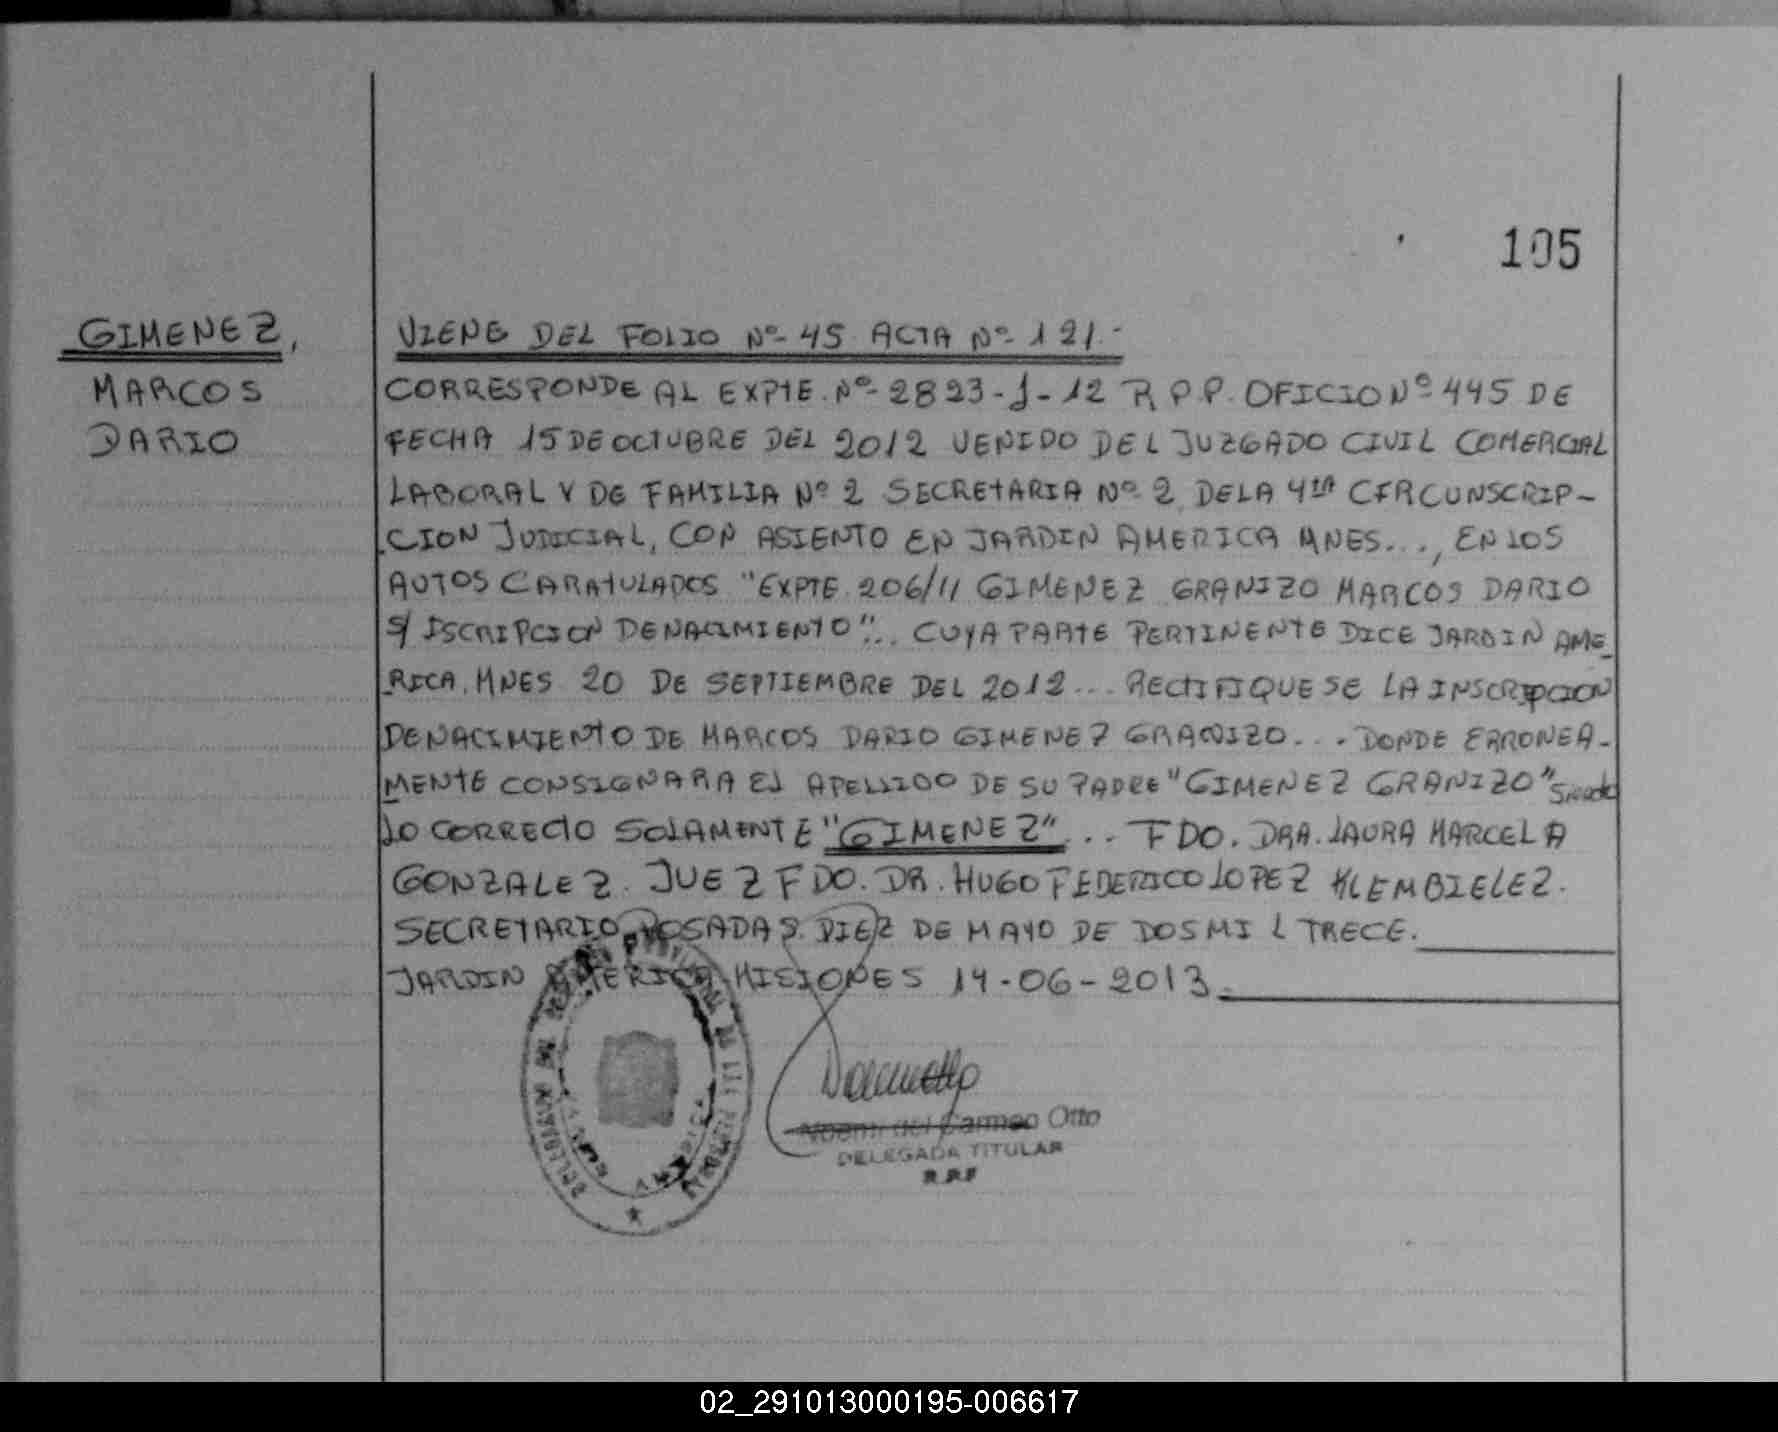 105
GIMENEZ,
MARCOS
DARIO
VIENE DEL FOLIO Nº- 45 ACTA Nº- 121.-
CORRESPONDE AL EXPTE. Nº- 2823-J-12 R.P.P. OFICIO Nº 445 DE
FECHA 15 DE OCTUBRE DEL 2012 VENIDO DEL JUZGADO CIVIL COMERCIAL
LABORAL Y DE FAMILIA Nº 2 SECRETARIA Nº 2, DE LA 4TA CIRCUNSCRIP-
CION JUDICIAL, CON ASIENTO EN JARDIN AMERICA MNES..., EN LOS
AUTOS CARATULADOS "EXPTE. 206/11 GIMENEZ GRANIZO MARCOS DARIO
S/ ISCRIPCION DE NACIMIENTO".. CUYA PARTE PERTINENTE DICE JARDIN AME-
RICA, MNES 20 DE SEPTIEMBRE DEL 2012... RECTIFIQUESE LA INSCRIPCION
DE NACIMIENTO DE MARCOS DARIO GIMENEZ GRANIZO... DONDE ERRONEA-
MENTE CONSIGNARA EL APELLIDO DE SU PADRE "GIMENEZ GRANIZO" siendo
LO CORRECTO SOLAMENTE "GIMENEZ"... FDO. DRA. LAURA MARCELA
GONZALEZ. JUEZ FDO. DR. HUGO FEDERICO LOPEZ KLEMBIELEZ.
SECRETARIO POSADAS. DIEZ DE MAYO DE DOS MIL TRECE.
JARDIN AMERICA MISIONES 14-06-2013.
Noemi del Carmen Otto
DELEGADA TITULAR
R.P.P
02_291013000195-006617